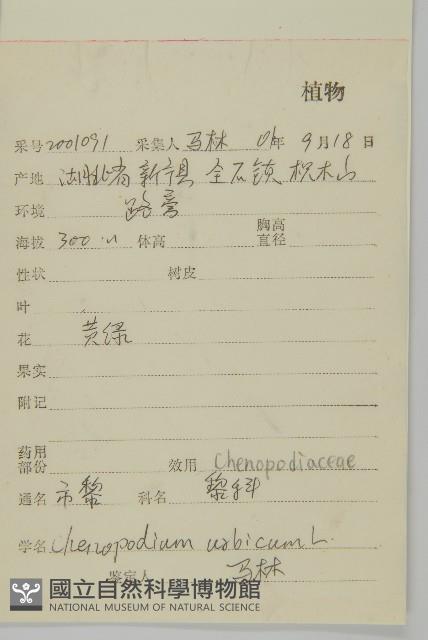 植物
采号 2001091 采集人 马林 01年 9月18日
产地 湖北省 新宁县 全石镇 枳木山
环境 路旁
海拔 300 m 体高 胸高直径
性状 树皮
叶
花 黄绿
果实
附记
药用部份 效用 Chenopodiaceae
通名 市藜 科名 藜科
学名 Chenopodium urbicum L.
鉴定人 马林
國立自然科學博物館
NATIONAL MUSEUM OF NATURAL SCIENCE